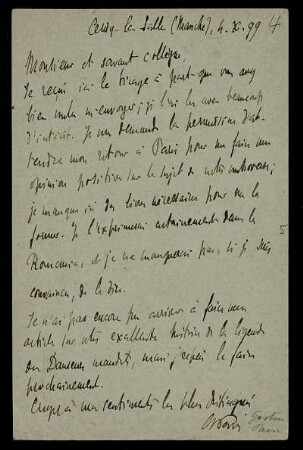 Cerisy-la-Salle (Manche), 4. XI. 99
4
Monsieur et savant collègue,
J'ai reçu ici le tirage à part que vous avez
bien voulu m'envoyer; je l'ai lu avec beaucoup
d'intérêt. Je vous demande la permission d'at-
tendre mon retour à Paris pour me faire une
opinion positive sur le sujet de notre controverse;
je manque ici des livres nécessaires pour me la
former. Je l'exprimerai certainement dans la
5
Romania, et je ne manquerai pas, si je suis
convaincu, de le dire.
Je n'ai pas encore pu arriver à faire mon
article sur votre excellente histoire de la légende
des Danseurs maudits, mais j'espère le faire
prochainement.
Croyez à mes sentiments les plus distingués
G Paris
Gaston
Paris